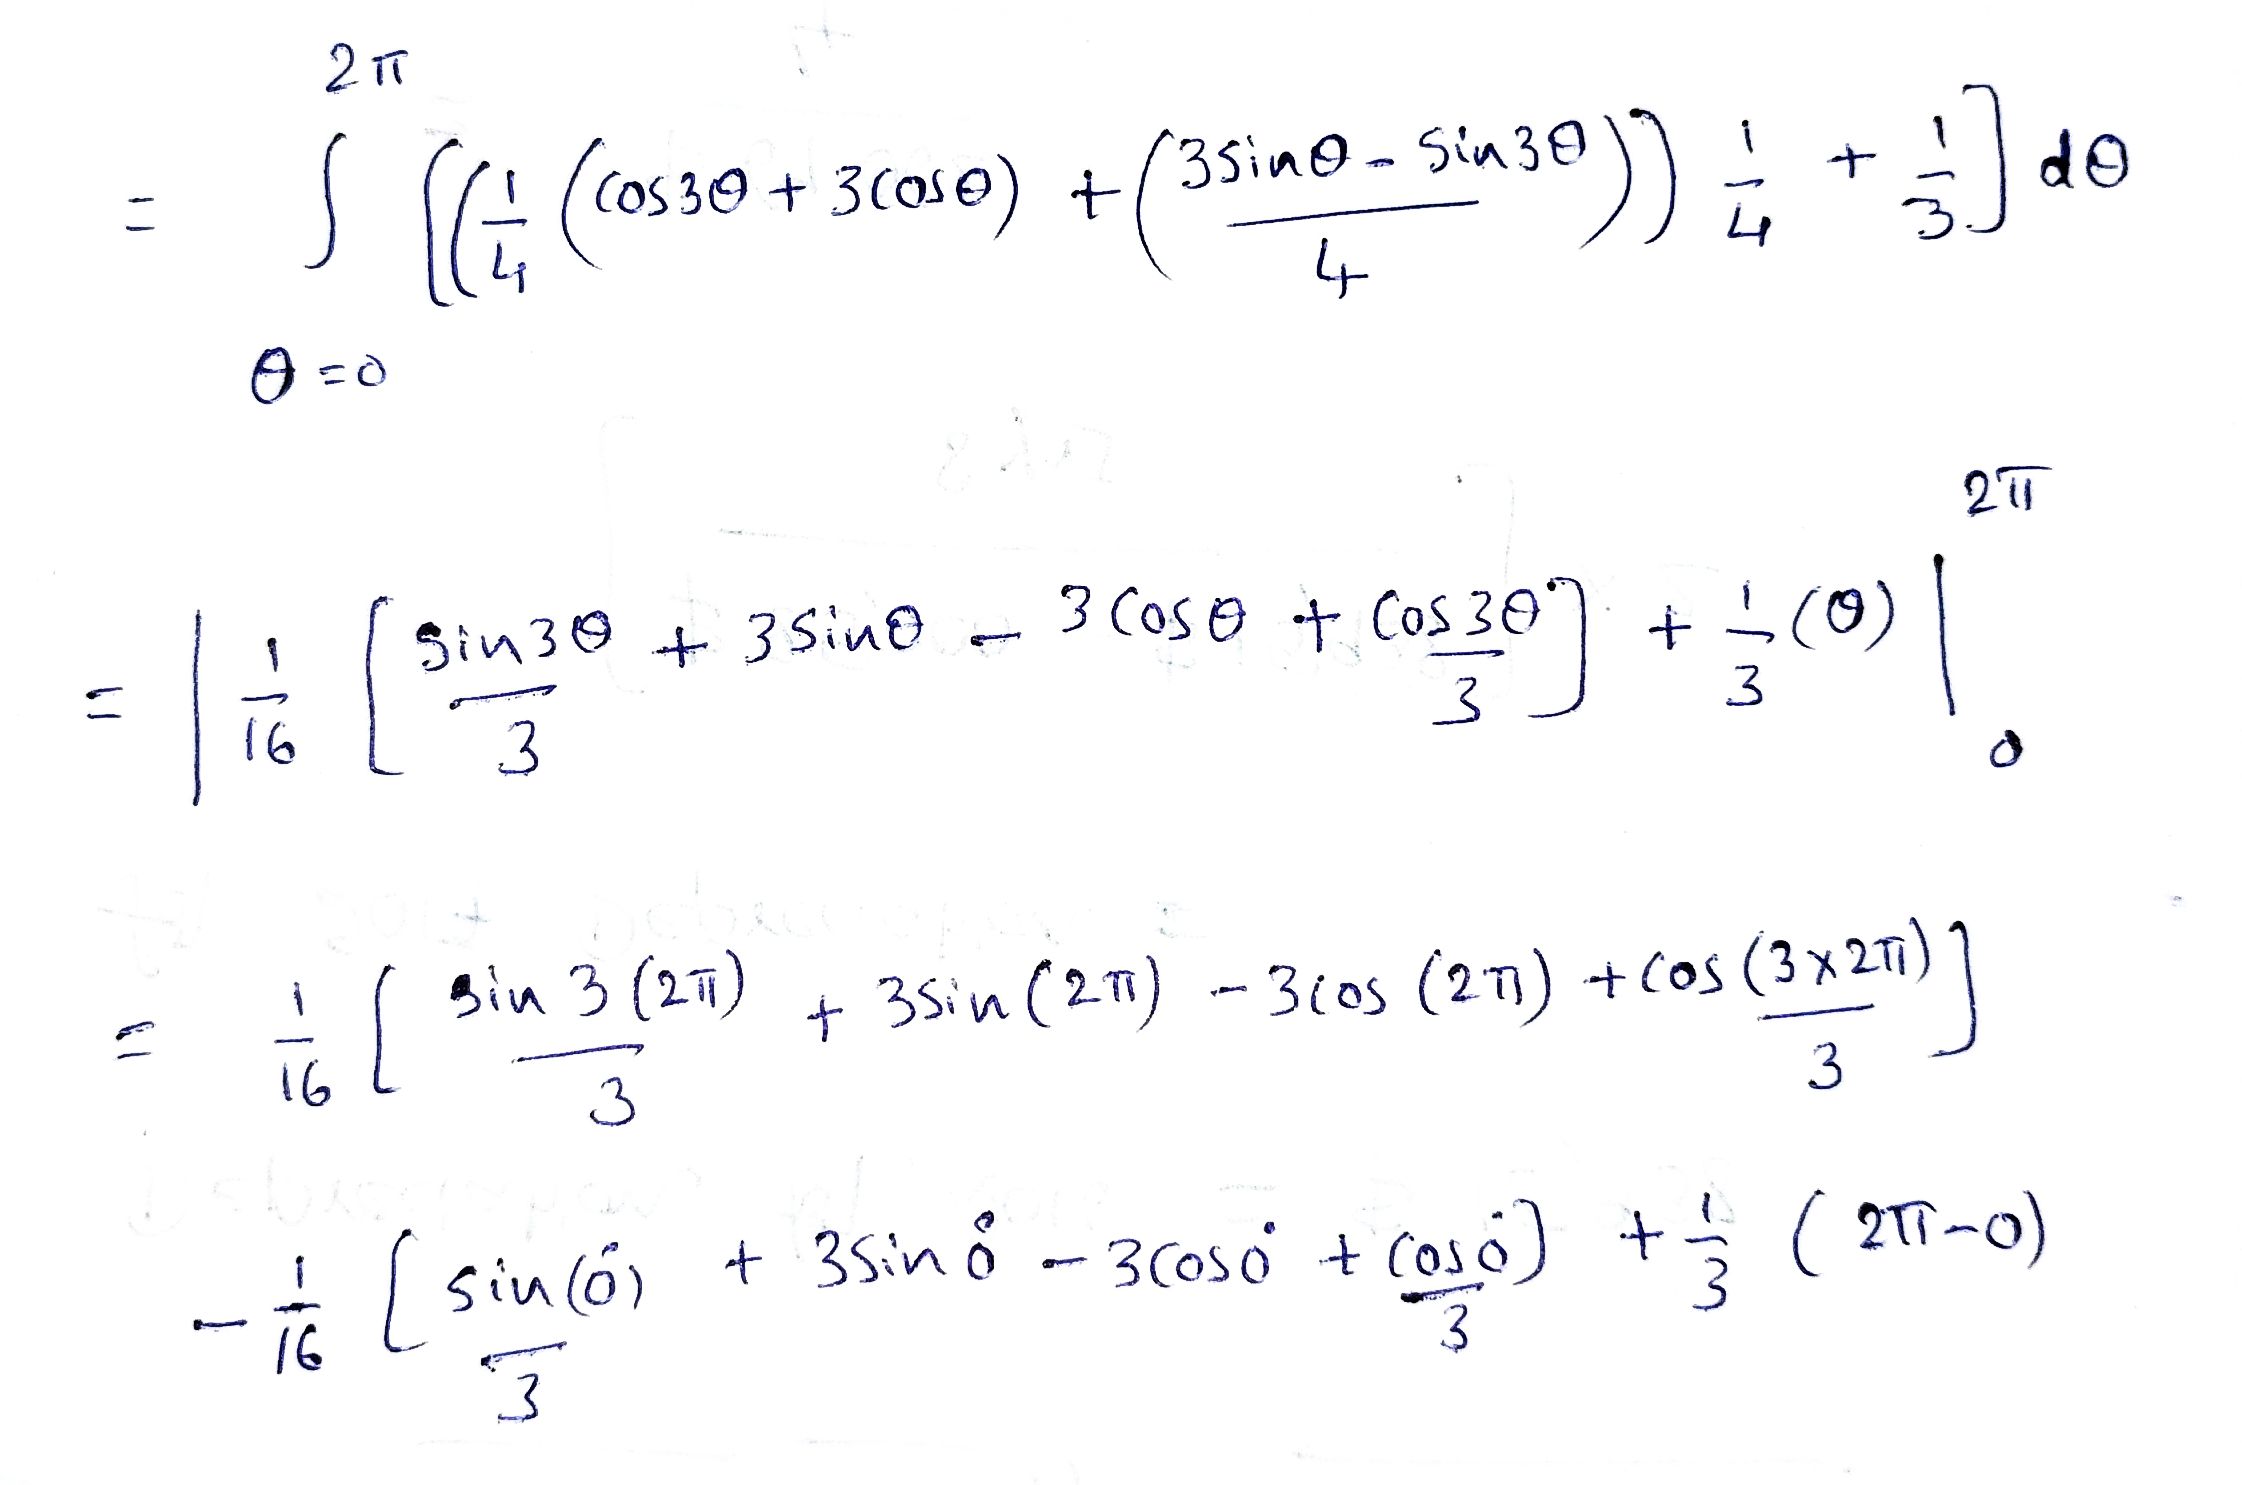 2π
= ∫ [(1/4 (cos3θ + 3cosθ) + (3sinθ - sin3θ / 4)) 1/4 + 1/3] dθ
θ=0
= | 1/16 [sin3θ/3 + 3sinθ - 3cosθ + cos3θ/3] + 1/3 (θ) |₀^2π
= 1/16 [sin 3(2π)/3 + 3sin(2π) - 3cos(2π) + cos(3×2π)/3]
- 1/16 [sin(0°)/3 + 3sin0° - 3cos0° + cos0°/3] + 1/3 (2π-0)